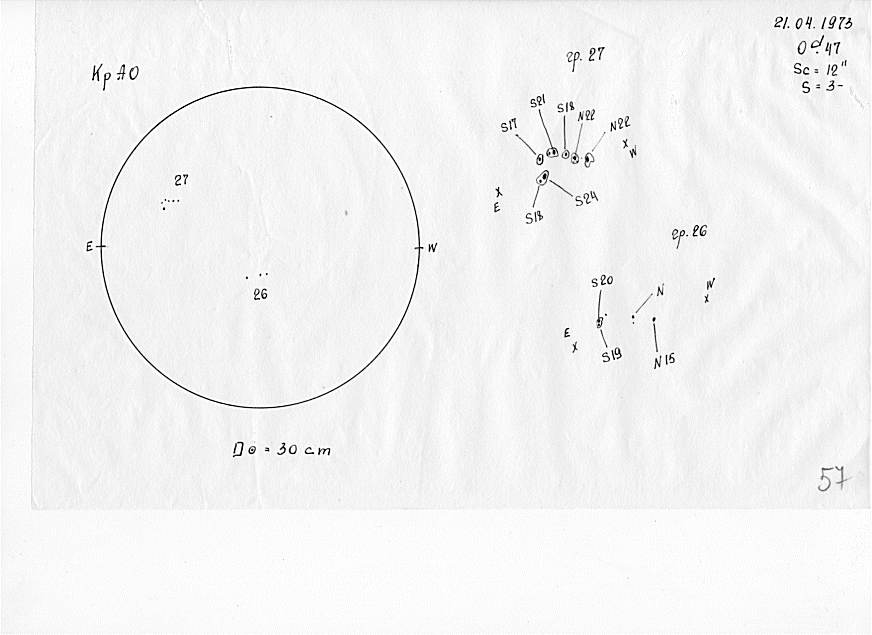 21.04.1973
0ᵈ.47
Sc = 12"
S = 3-
КрАО
гр. 27
S17
S21
S18
N22
N22
x
W
x
E
S18
S24
27
E
W
26
гр. 26
S20
N
W
x
E
x
S19
N15
D⊙ = 30 cm
57